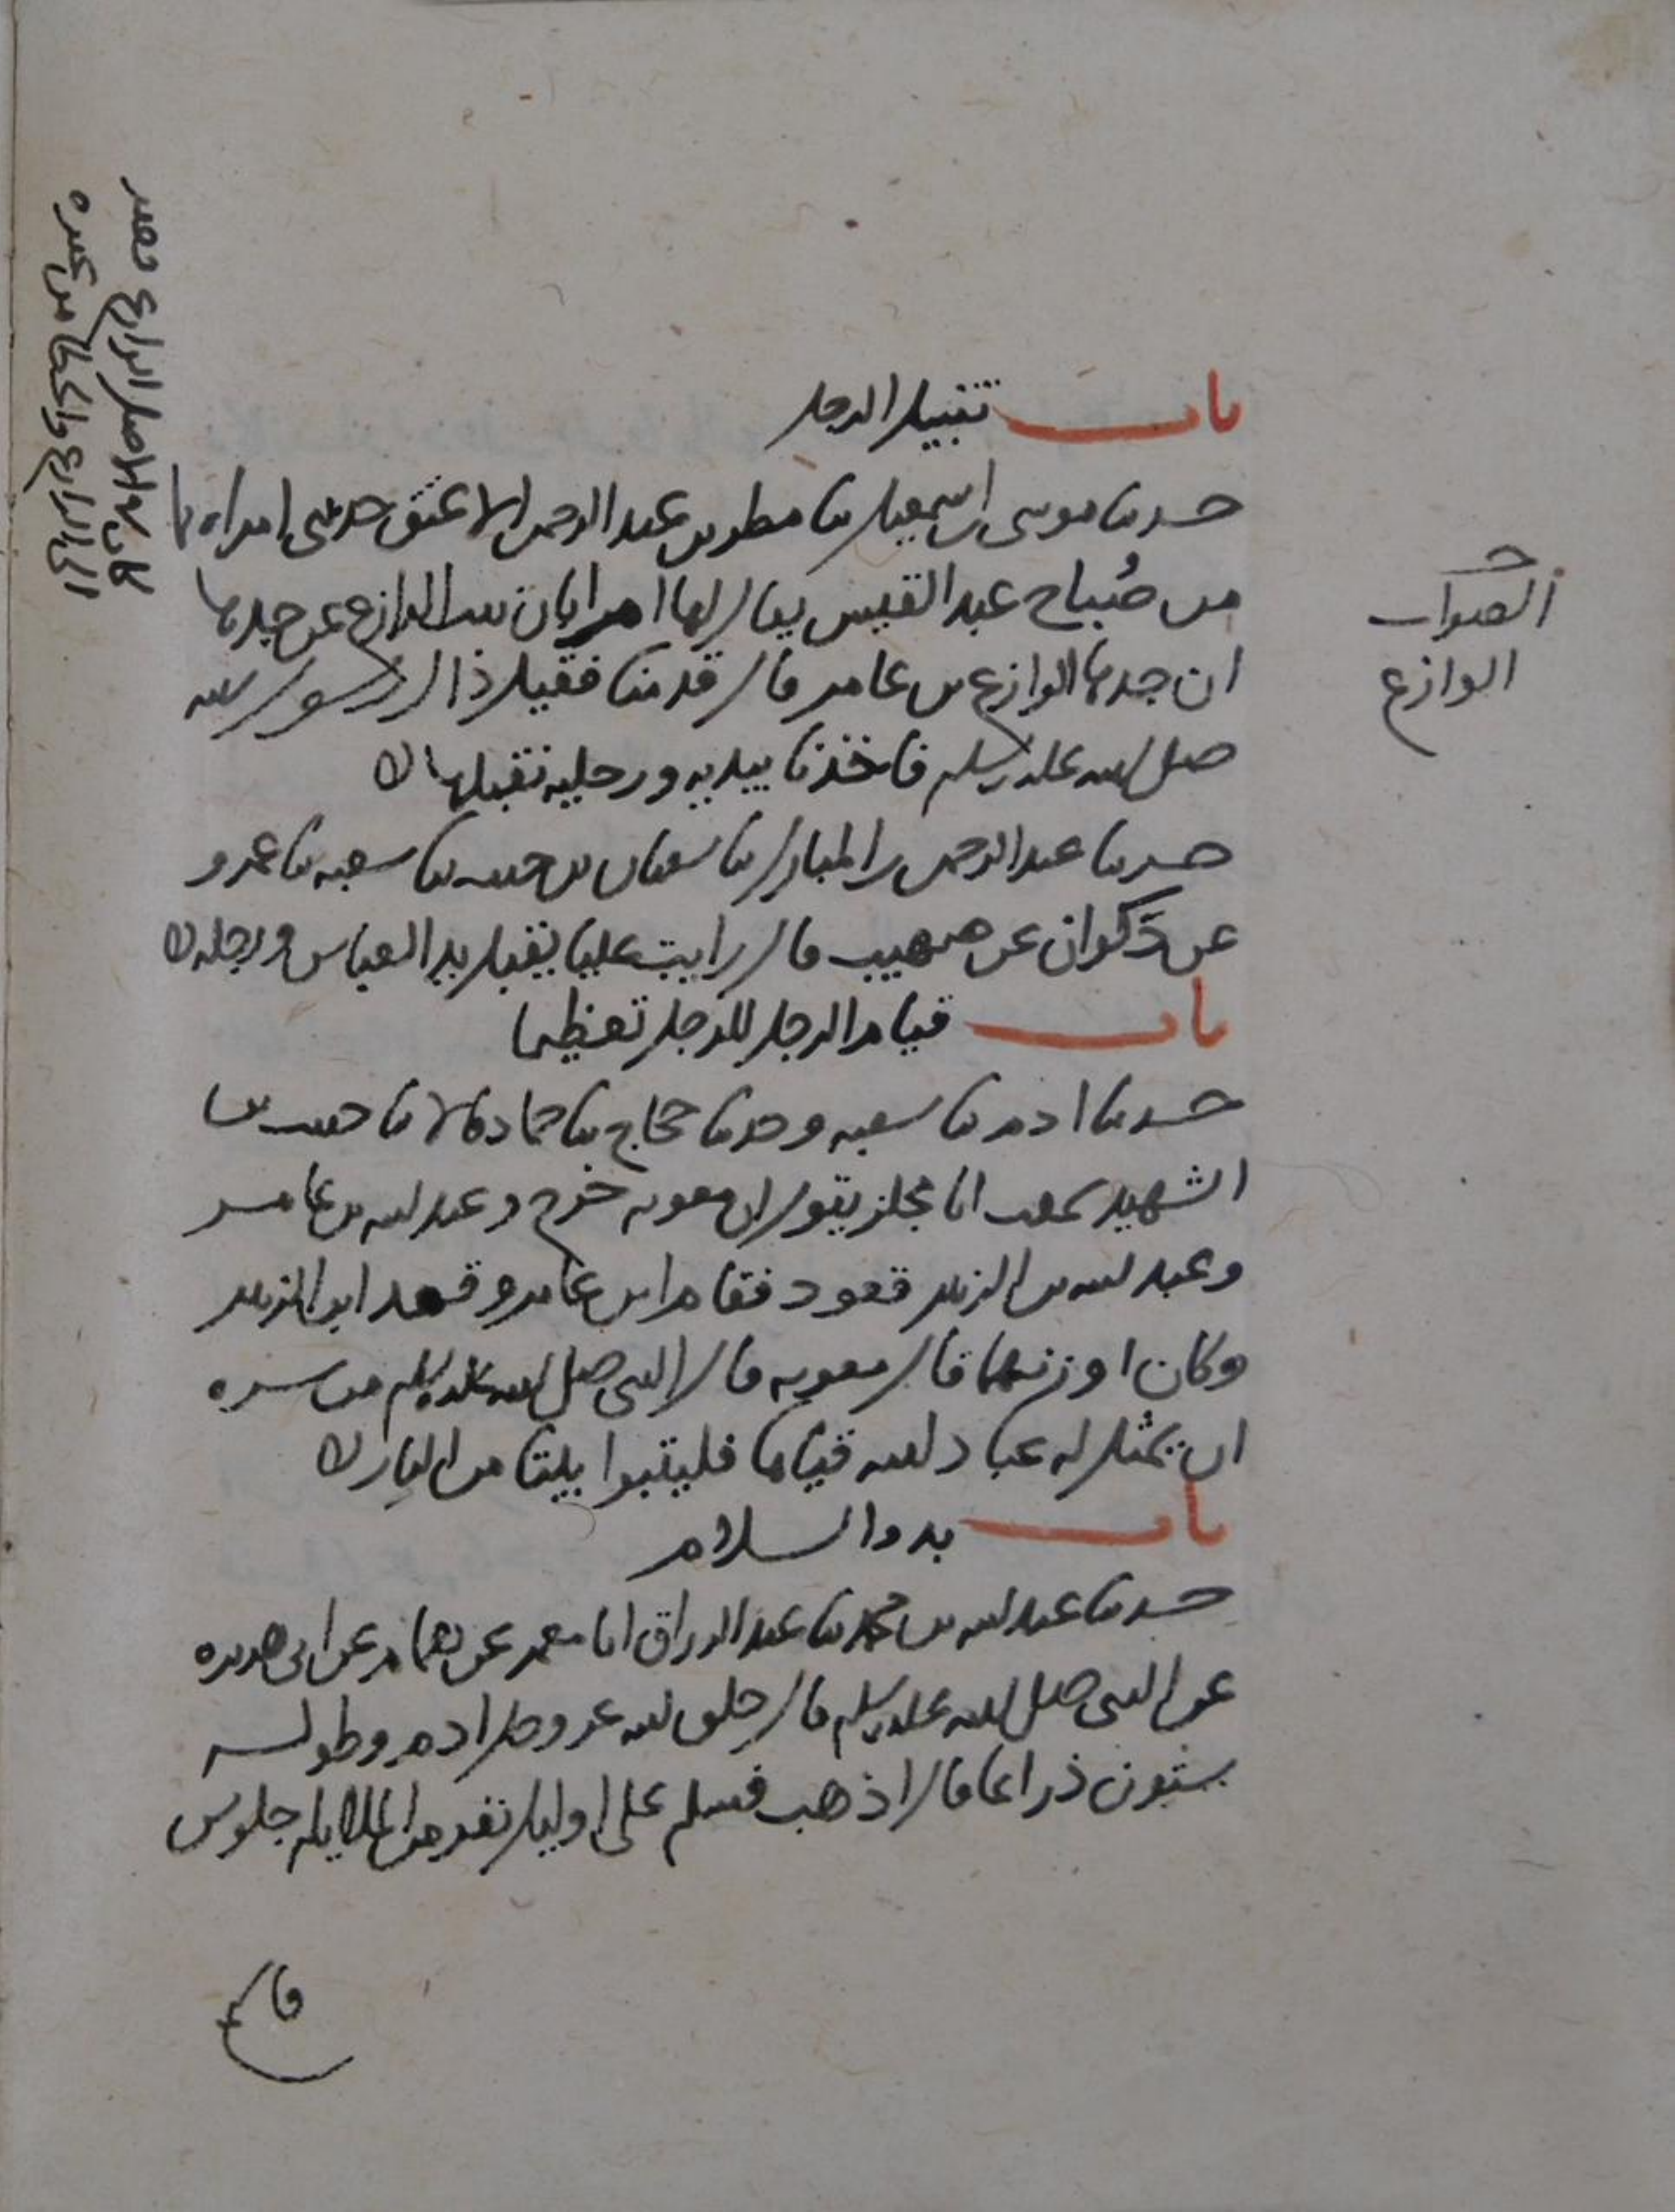 باب تقبيل الرجل
حدثنا موسى بن اسمعيل ثنا مطر بن عبد الرحمن الاعنق حدثتني امراه
من صُباح عبد القيس يقال لها ام ابان بنت الوازع عن جدها
ان جدها الوازع بن عامر قال قدمنا فقيل ذاك رسول الله
صلى الله عليه وسلم فاخذنا بيديه ورجليه نقبلها
حدثنا عبد الرحمن بن المبارك ثنا سفيان بن حبيب ثنا شعبه ثنا عمرو
عن ذكوان عن صهيب قال رايت عليا يقبل يد العباس ورجله
باب قيام الرجل للرجل تعظيما
حدثنا ادم ثنا شعبه وحدثنا حجاج ثنا حماد قالا ثنا حبيب بن
الشهيد سمعت ابا مجلز يقول ان معويه خرج وعبد الله بن عامر
وعبد الله بن الزبير قعود فقام ابن عامر وقعد ابن الزبير
وكان اوزنهما قال معويه قال النبي صلى الله عليه وسلم من سره
ان يمثل له عباد الله قياما فليتبوا بيتا من النار
باب بدو السلام
حدثنا عبد الله بن محمد ثنا عبد الرزاق انا معمر عن همام عن ابي هريره
عن النبي صلى الله عليه وسلم قال خلق الله عز وجل ادم وطوله
ستون ذراعا قال اذهب فسلم على اوليك نفر من الملايكه جلوس
الصواب
الوازع
كان في الاصل الزارع فغير
الى الوازع والخطا من غيره